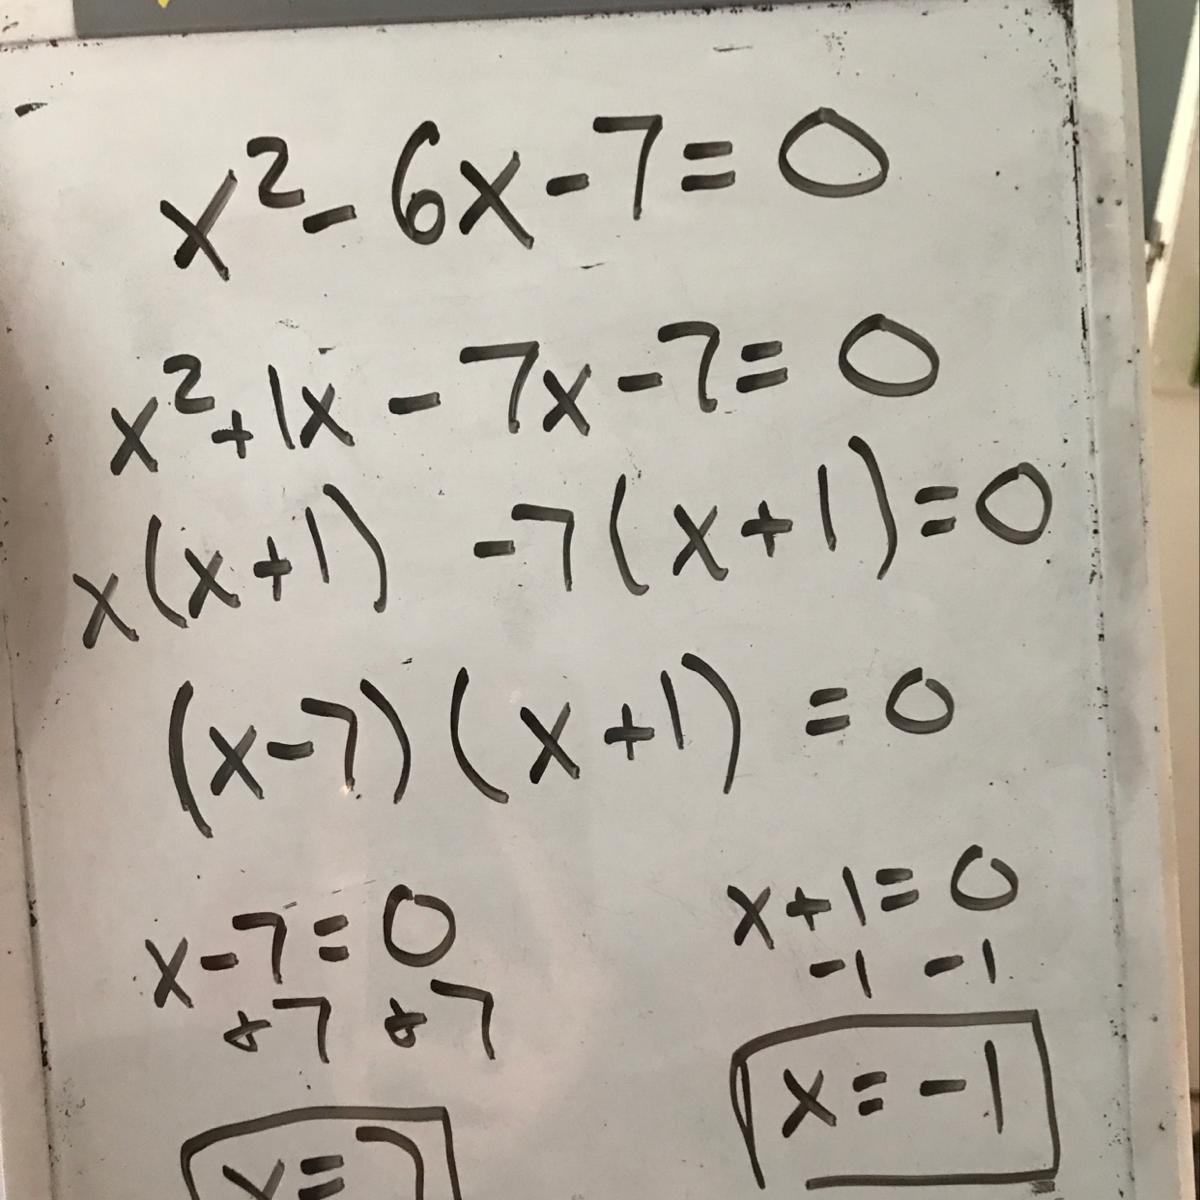 x² - 6x - 7 = 0
x² + 1x - 7x - 7 = 0
x(x+1) -7(x+1) = 0
(x-7)(x+1) = 0
x - 7 = 0
+7 +7
x = 7
x + 1 = 0
-1 -1
x = -1